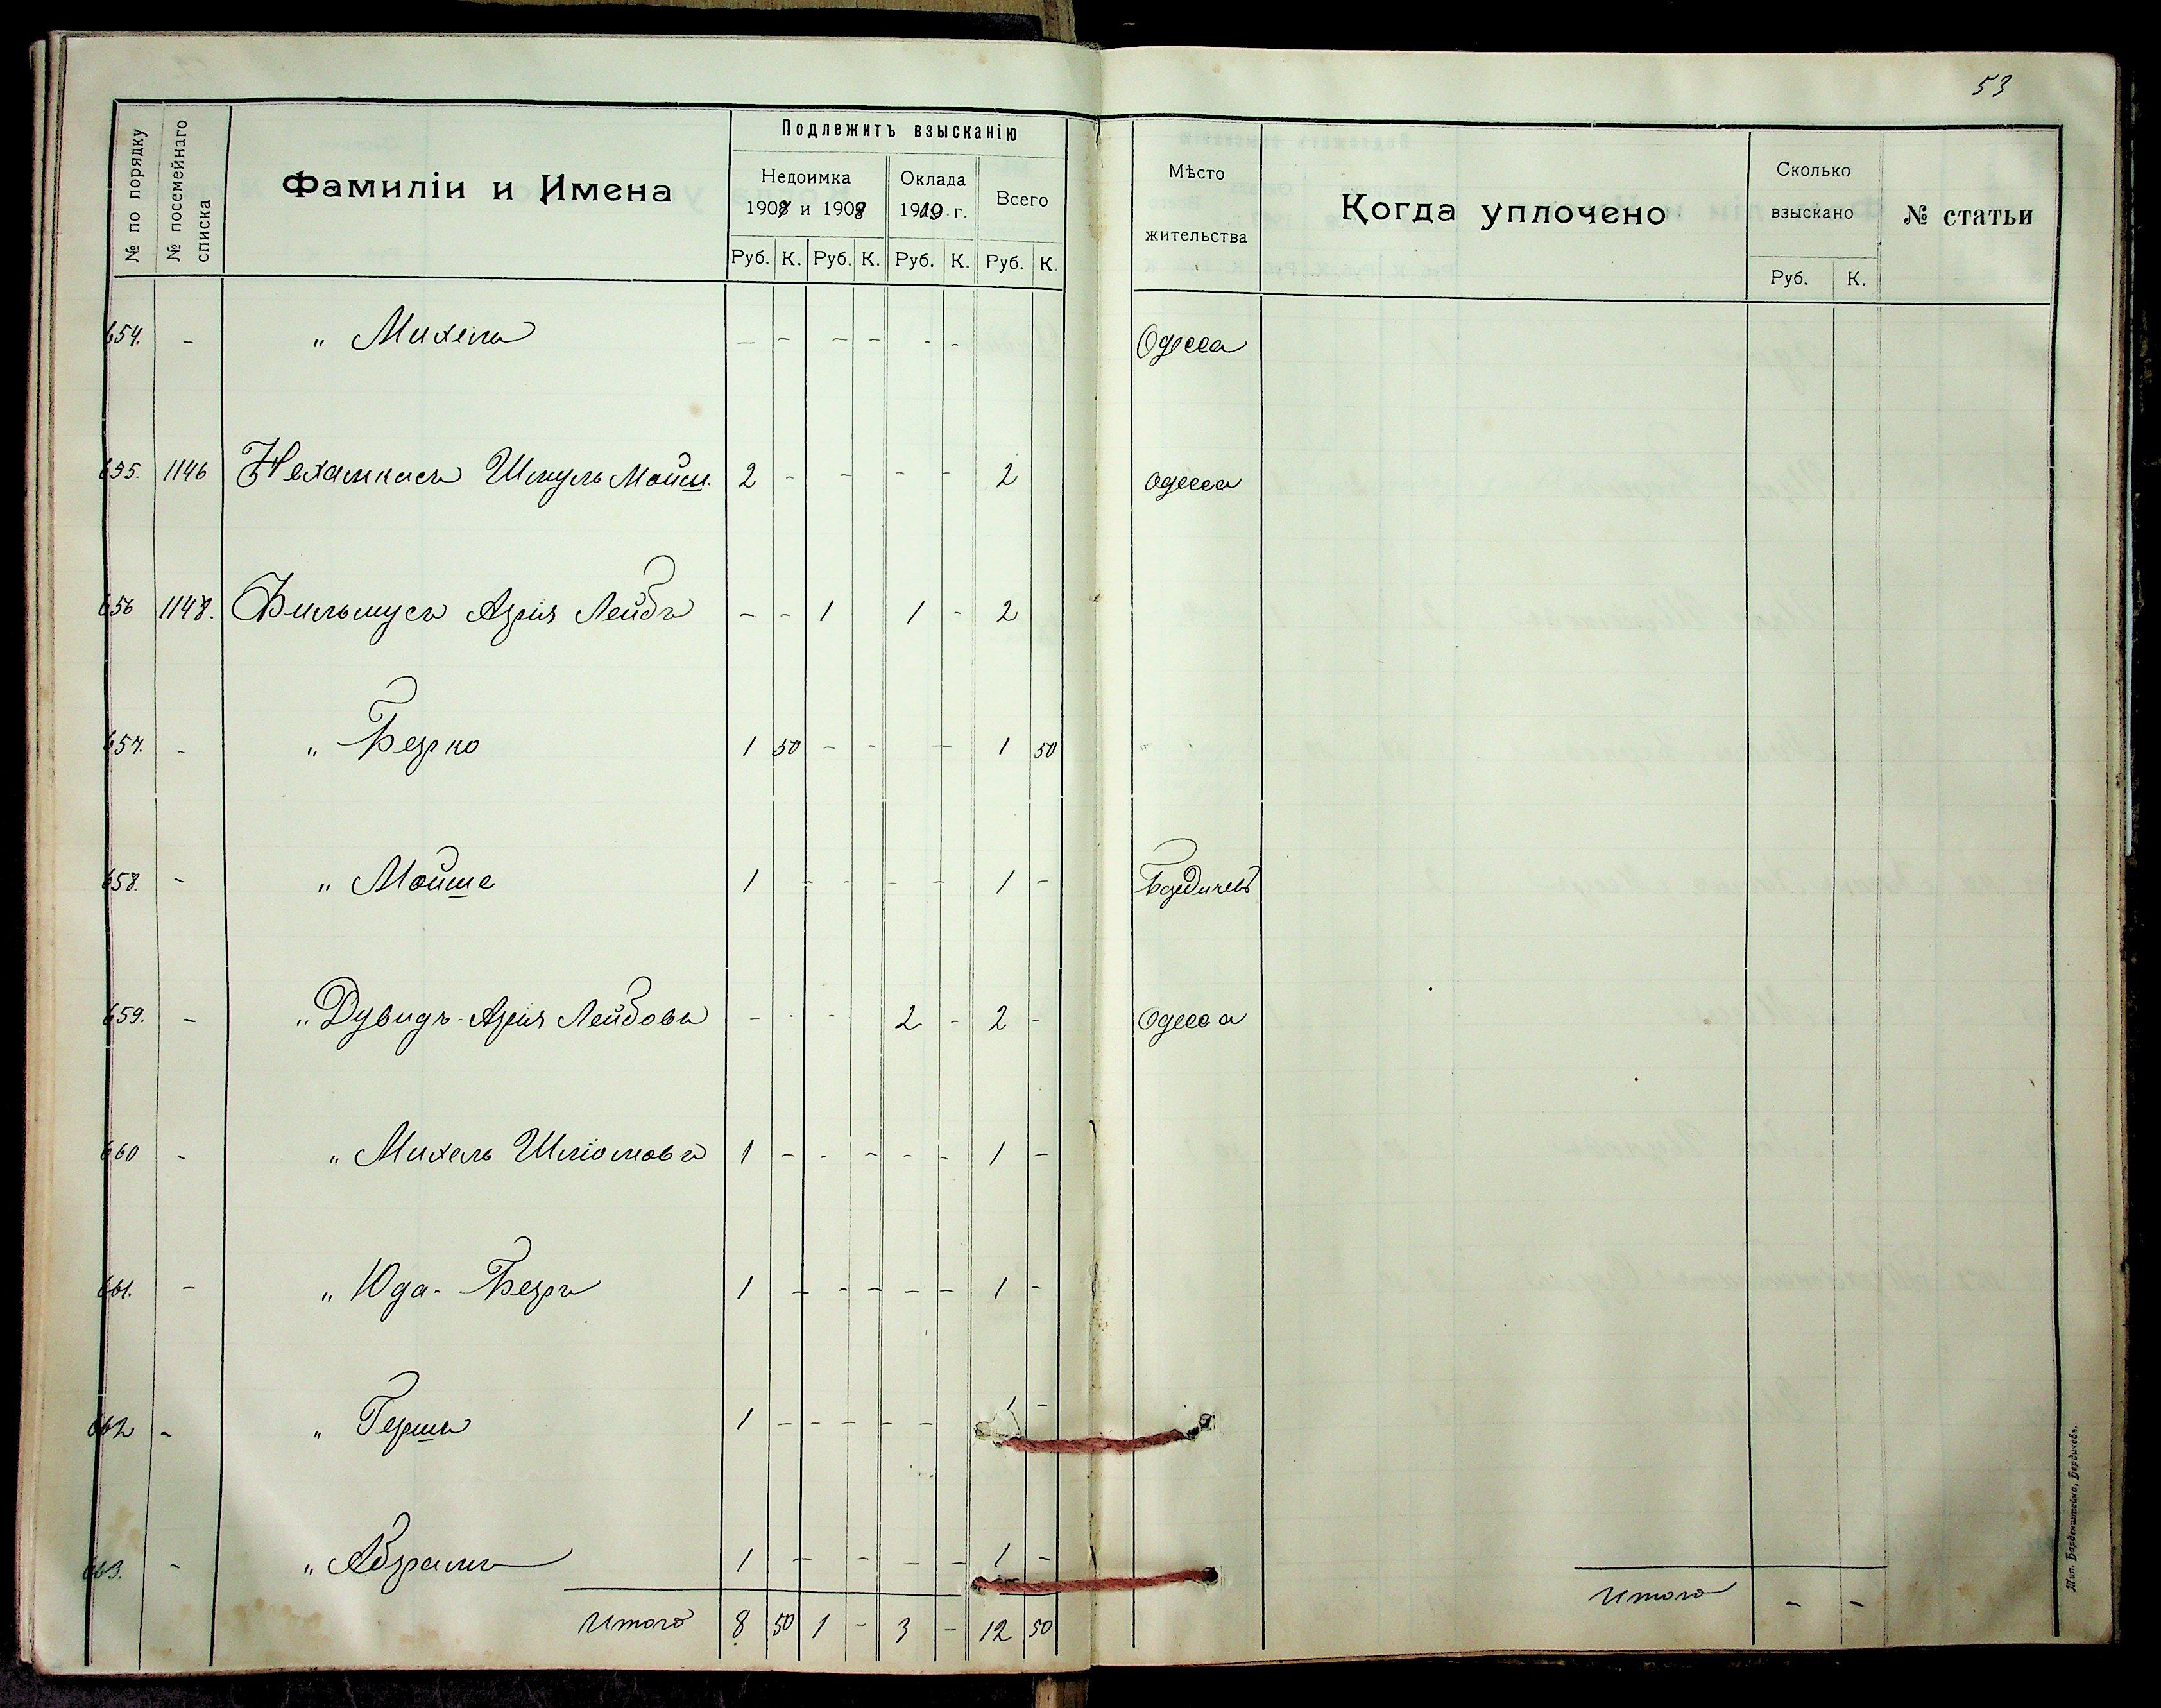 53
Подлежитъ взысканію
№ по порядку
№ посемейнаго списка
Фамиліи и Имена
Недоимка
1908 и 1909
Оклада
1910 г.
Всего
Руб. К. Руб. К. Руб. К. Руб. К.
Мѣсто
жительства
Когда уплочено
Сколько
взыскано
Руб. К.
№ статьи
654. - " Михель - - - - - - Одесса
655. 1146 Нехамкисъ Шмуль Мойш. 2 - - - - 2 Одесса
656 1148. Вильмусъ Арія Лейбъ - - 1 1 - 2
657. - " Берко 1 50 - - - 1 50
658. - " Мойше 1 - - - - 1 - Бердичевъ
659. - " Дувидъ-Арія Лейбовъ - - - 2 - 2 - Одесса
660 - " Михель Шліомовъ 1 - - - - - 1 -
661. - " Юда-Беръ 1 - - - - - 1 -
662 - " Гершъ 1 - - - - - 1 -
663. - " Абрамъ 1 - - - - 1 -
Итого 8 50 1 - 3 - 12 50
Итого - -
Тип. Барденштейна, Бердичевъ.